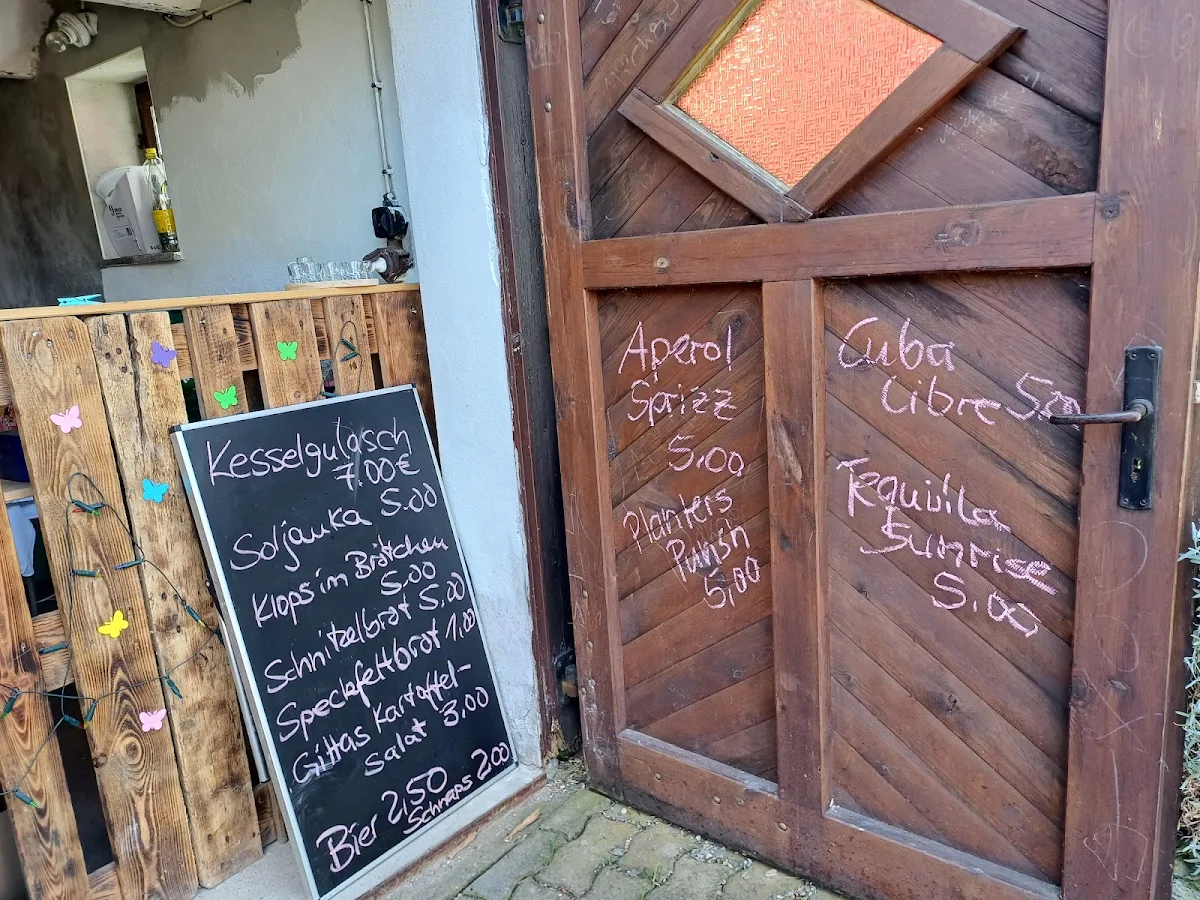 Kesselgulasch
7.00€
Soljanka 5.00
Klops im Brötchen
5,00
Schnitzelbrot 5.00
Speckfettbrot 1,00
Gittas Kartoffel-
Salat 3,00
Bier 2,50
Schnaps 2,00
Aperol
Sprizz
5,00
Planters
Punsh
5,00
Cuba
Libre 5,00
Tequila
Sunrise
5,00